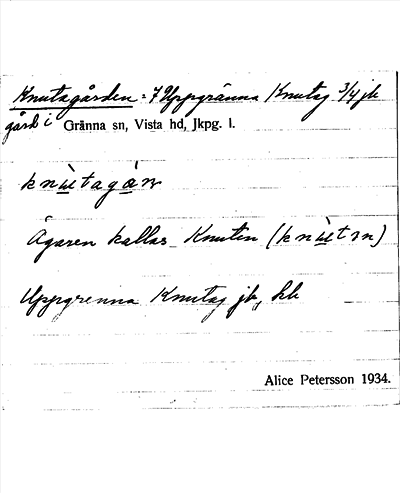 Knutagården = 7 Uppgränna Knutag 3/4 jb
gård i Gränna sn, Vista hd, Jkpg. l.
knùtagàn
Ägaren kallas Knuten (knùtɜn)
Uppgrenna Knutag jb, hb
Alice Petersson 1934.